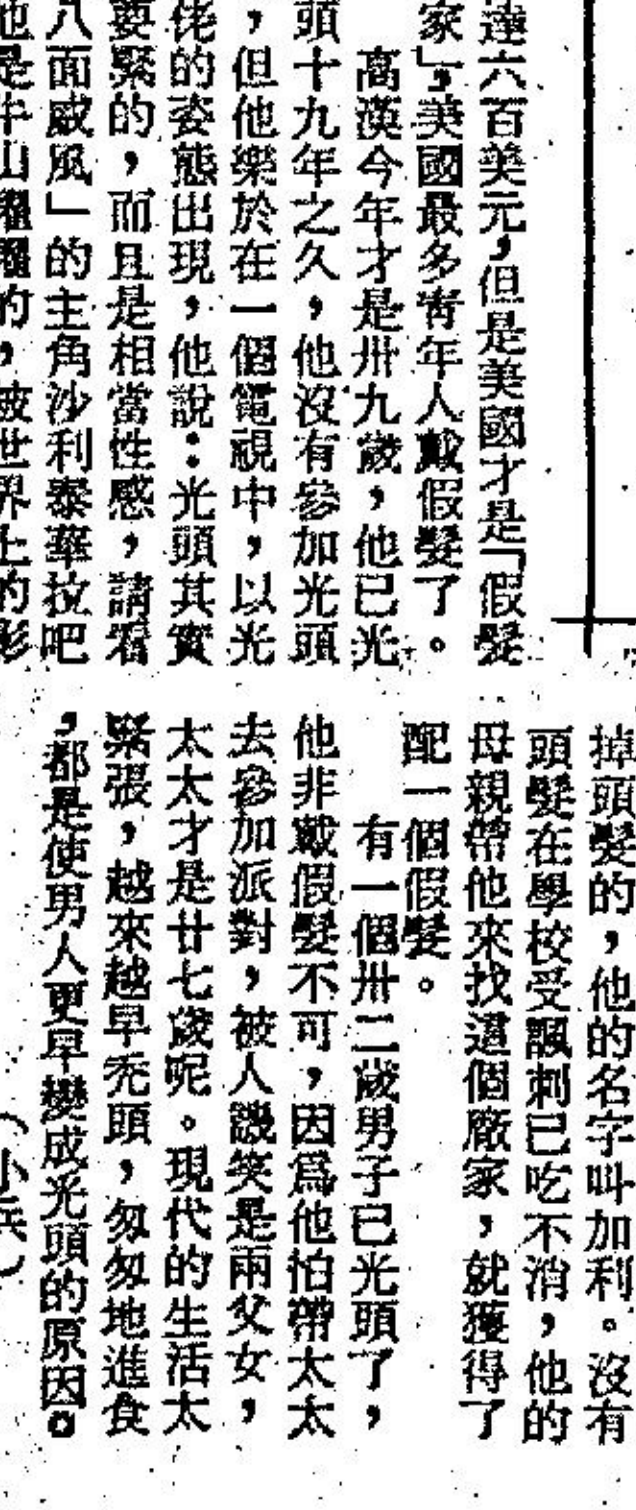 達六百美元,但是美國才是「假髮
家」,美國最多青年人戴假髮了。
高漢今年才是卅九歲,他已光
頭十九年之久,他沒有參加光頭
,但他樂於在一個電視中,以光
佬的姿態出現,他說:光頭其實
要緊的,而且是相當性感,請看
八面威風」的主角沙利泰華拉吧
他是牛山濯濯的,被世界上的影
掉頭髮的,他的名字叫加利。沒有
頭髮在學校受諷刺已吃不消,他的
母親帶他來找這個廠家,就獲得了
配一個假髮。
有一個卅二歲男子已光頭了,
他非戴假髮不可,因爲他怕帶太太
去參加派對,被人譏笑是兩父女,
太太才是廿七歲呢。現代的生活太
緊張,越來越早禿頭,匆匆地進食
,都是使男人更早變成光頭的原因。
(小兵)